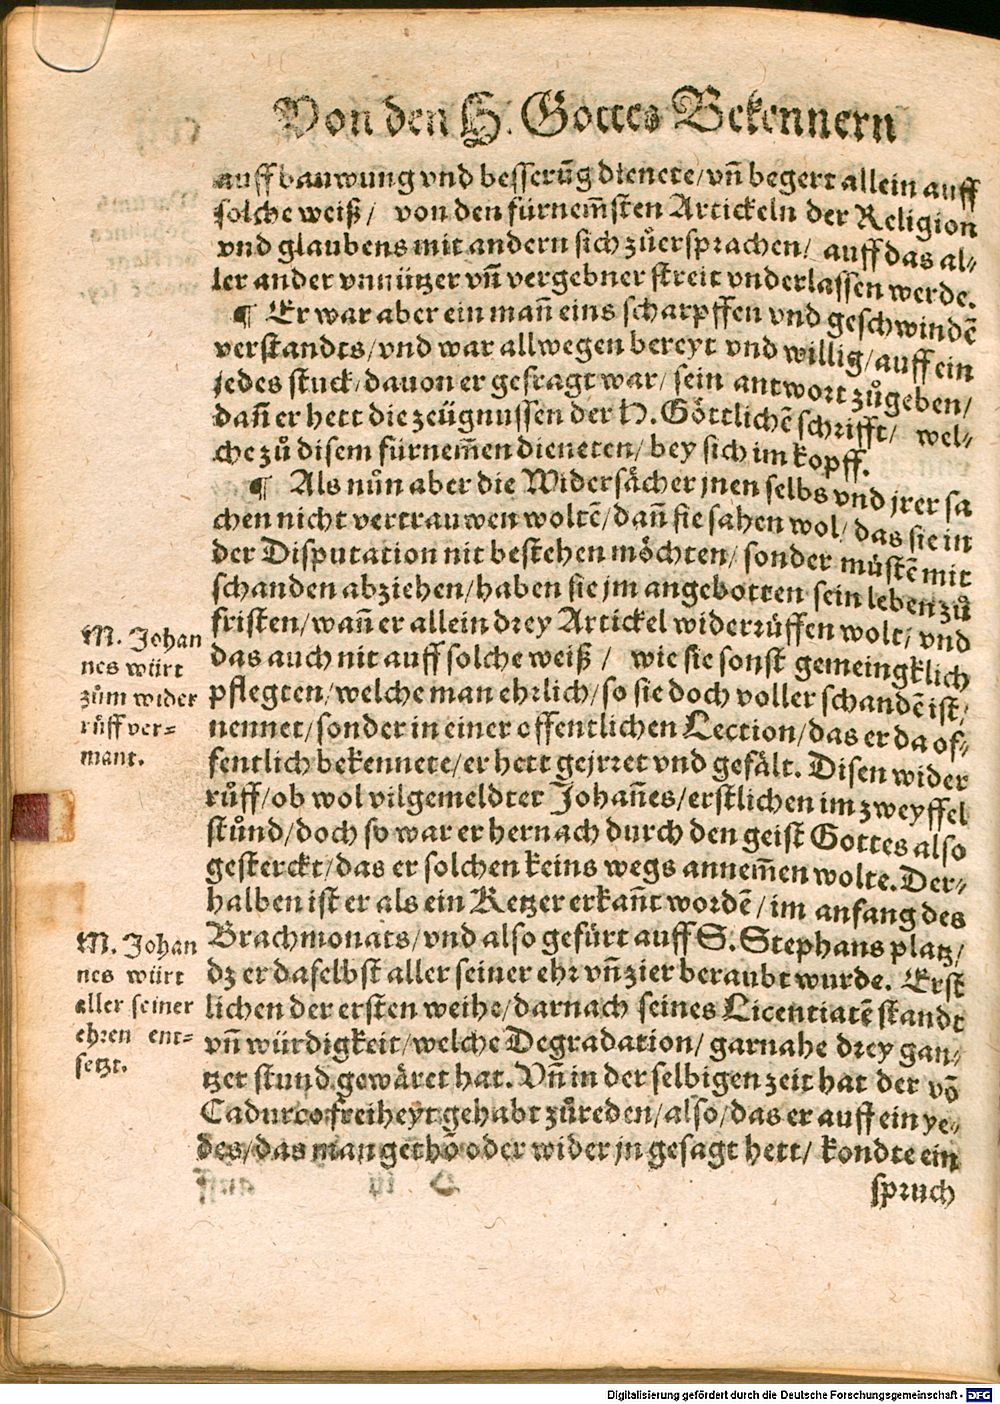 Von den H. Gottes Bekennern
auffbauwung vnd besserũg dienete/ vñ begert allein auff
solche weiß/ von den fürnem̃sten Artickeln der Religion
vnd glaubens mit andern sich zůersprachen/ auff das al-
ler ander vnnützer vñ vergebner streit vnderlassen werde.
¶ Er war aber ein mañ eins scharpffen vnd geschwindẽ
verstandts/ vnd war allwegen bereyt vnd willig/ auff ein
jedes stuck/ dauon er gefragt war/ sein antwort zůgeben/
dañ er hett die zeügnussen der H. Göttlichẽ schrifft/ wel-
che zů disem fürnem̃en dieneten/ bey sich im kopff.
¶ Als nůn aber die Widersächer jnen selbs vnd jrer sa
chen nicht vertrauwen woltẽ/ dañ sie sahen wol/ das sie in
der Disputation nit bestehen möchten/ sonder můstẽ mit
schanden abziehen/ haben sie jm angebotten sein leben zů
fristen/ wañ er allein drey Artickel widerrüffen wolt/ vnd
das auch nit auff solche weiß/ wie sie sonst gemeingklich
pflegten/ welche man ehrlich/ so sie doch voller schandẽ ist/
nennet/ sonder in einer offentlichen Lection/ das er da of-
fentlich bekennete/ er hett gejrret vnd gefält. Disen wider
růff/ ob wol vilgemeldter Johañes/ erstlichen im zweyffel
stůnd/ doch so war er hernach durch den geist Gottes also
gesterckt/ das er solchen keins wegs annem̃en wolte. Der-
halben ist er als ein Ketzer erkañt wordẽ/ im anfang des
Brachmonats/ vnd also gefürt auff S. Stephans platz/
dz er daselbst aller seiner ehr vñ zier beraubt wurde. Erst
lichen der ersten weihe/ darnach seines Licentiatẽ standt
vñ würdigkeit/ welche Degradation/ garnahe drey gan-
tzer stund gewäret hat. Vñ in der selbigen zeit hat der võ
Cadurco freiheyt gehabt zůreden/ also/ das er auff ein ye-
des/ das man gethõ oder wider jn gesagt hett/ kondte ein
spruch
M. Johan
nes würt
zům wider
růff ver-
mant.
M. Johan
nes würt
aller seiner
ehren ent-
setzt.
Digitalisierung gefördert durch die Deutsche Forschungsgemeinschaft - DFG